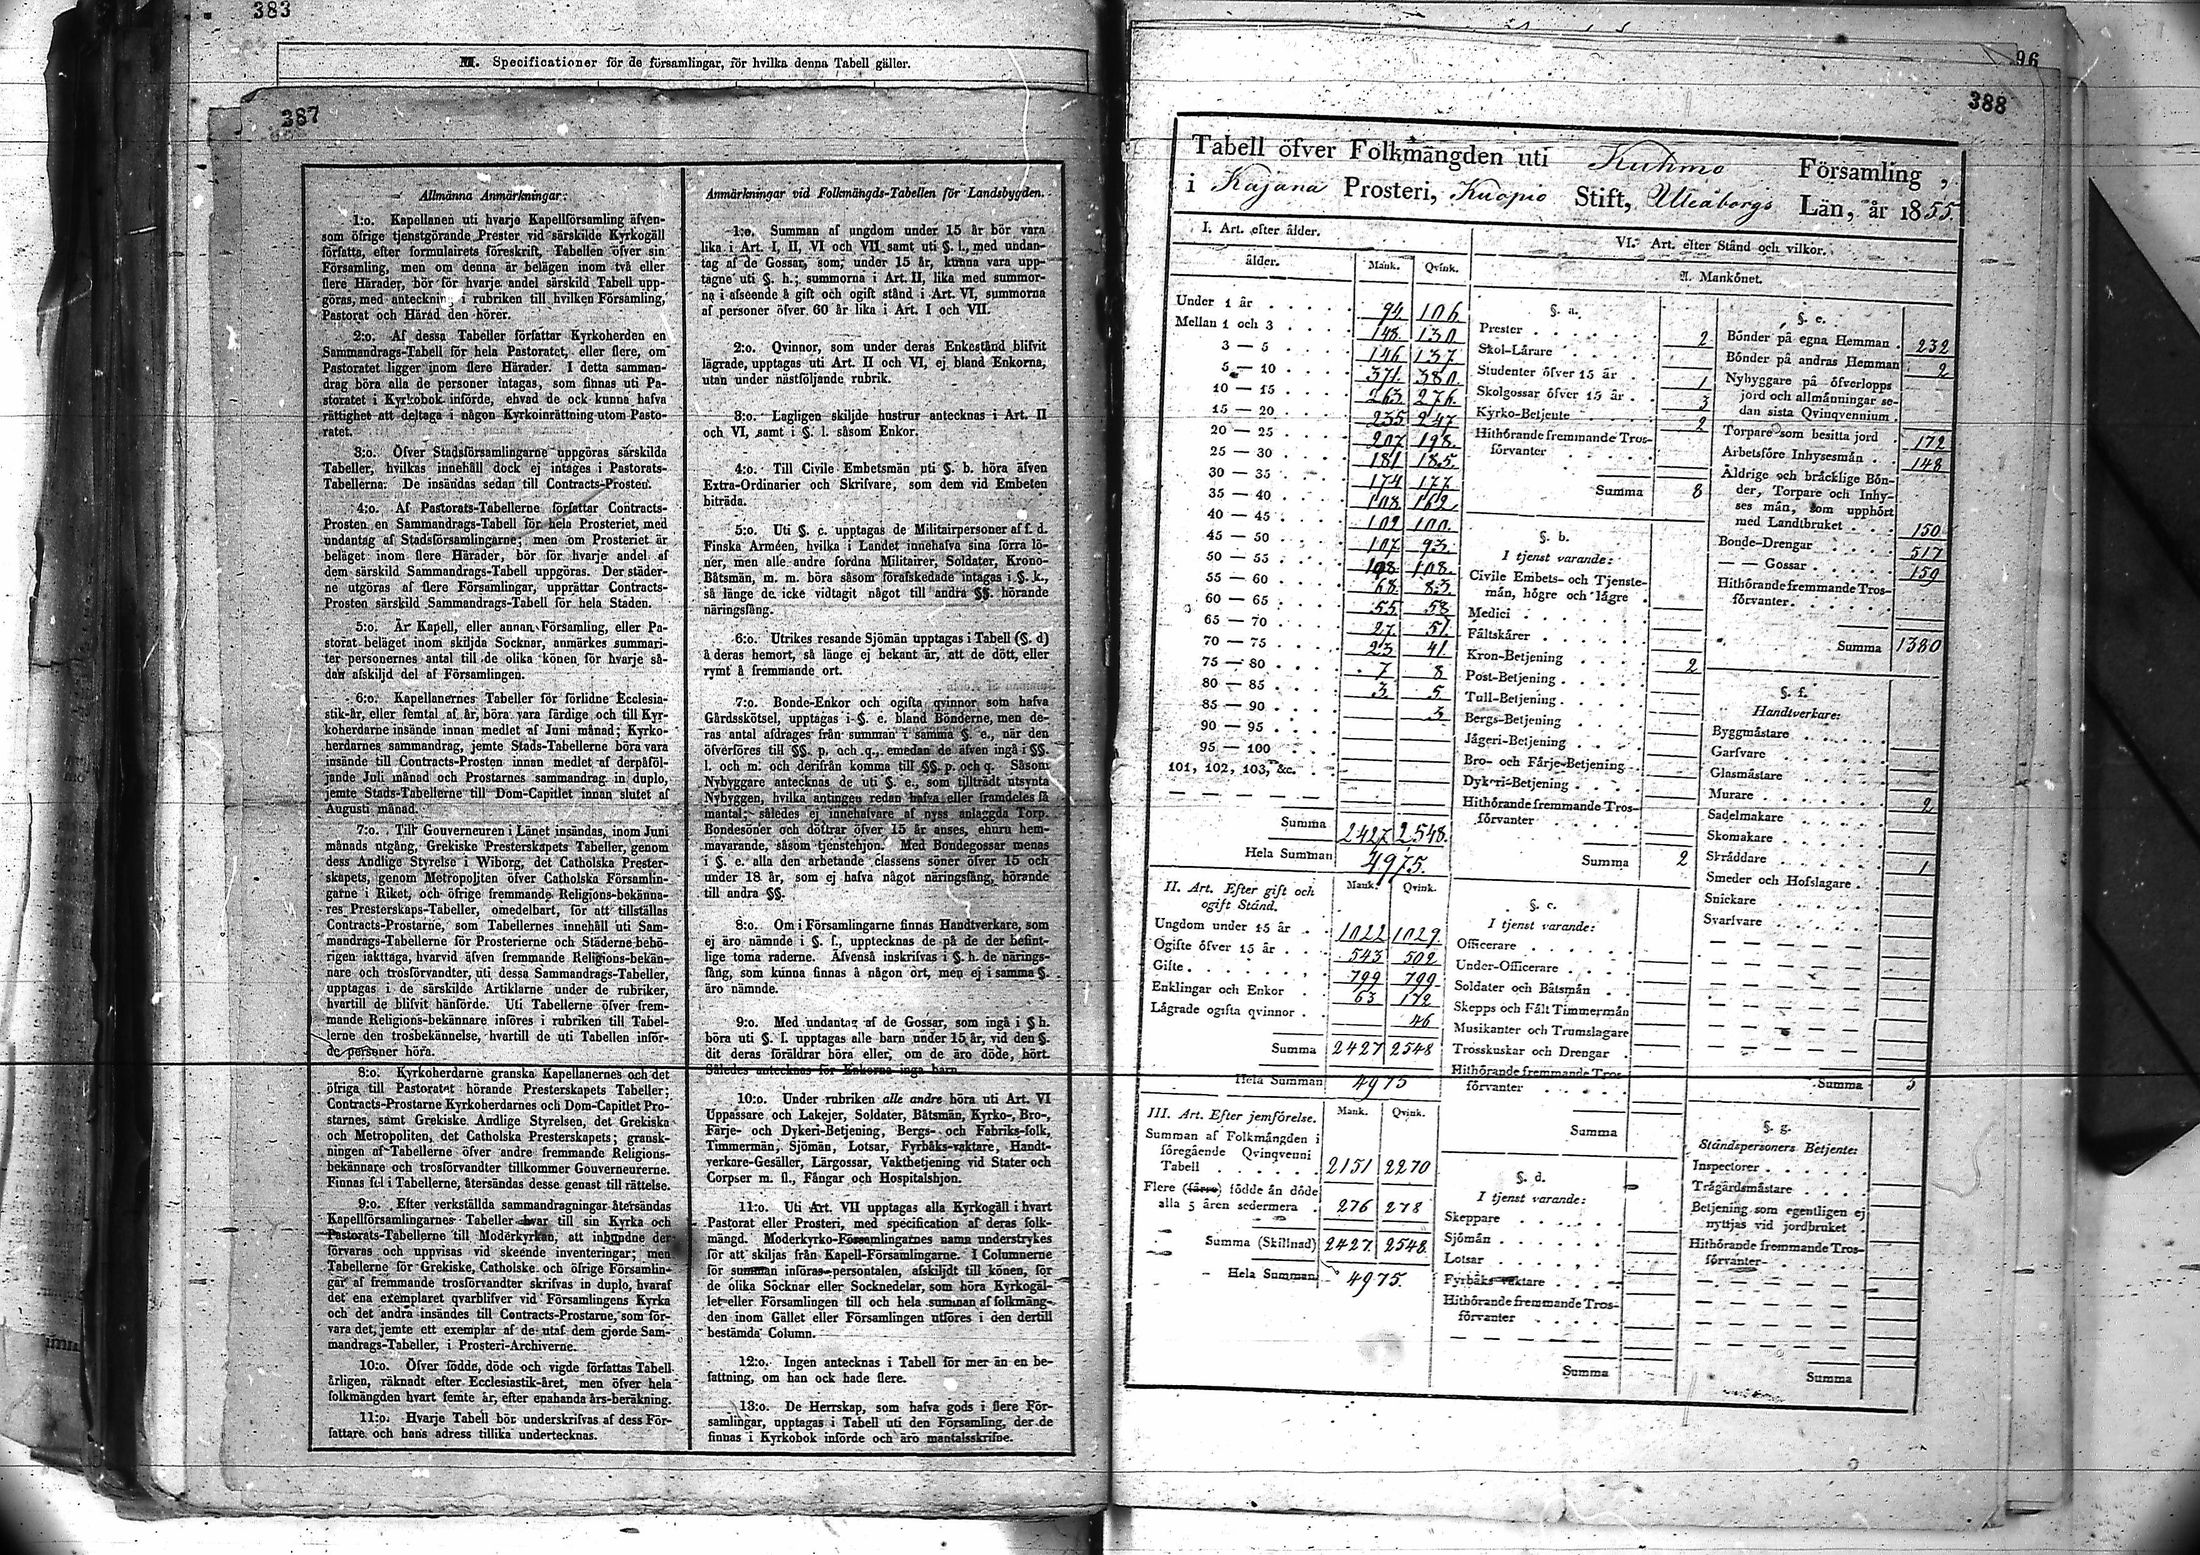 383
M. Specificationer för de församlingar, för hvilka denna Tabell gäller.
387
Allmänna Anmärkningar:
1:o. Kapellanen uti hvarje Kapellförsamling äfven-
som öfrige tjenstgörande Prester vid särskilde Kyrkogäll
författa, efter formulairets föreskrift, Tabellen öfver sin
Församling, men om denna är belägen inom två eller
flere Härader, bör för hvarje andel särskild Tabell upp-
göras, med anteckning i rubriken till hvilken Församling,
Pastorat och Härad den hörer.
2:o. Af dessa Tabeller författar Kyrkoherden en
Sammandrags-Tabell för hela Pastoratet, eller flere, om
Pastoratet ligger inom flere Härader. I detta samman-
drag böra alla de personer intagas, som finnas uti Pa-
storatet i Kyrkobok införde, ehvad de ock kunna hafva
rättighet att deltaga i någon Kyrkoinrättning utom Pasto-
ratet.
3:o. Öfver Stadsförsamlingarne uppgöras särskilda
Tabeller, hvilkas innehåll dock ej intages i Pastorats-
Tabellerna. De insändas sedan till Contracts-Prosten.
4:o. Af Pastorats-Tabellerne författar Contracts-
Prosten en Sammandrags-Tabell för hela Prosteriet, med
undantag af Stadsförsamlingarne; men om Prosteriet är
beläget inom flere Härader, bör för hvarje andel af
dem särskild Sammandrags-Tabell uppgöras. Der städer-
ne utgöras af flere Församlingar, upprättar Contracts-
Prosten särskild Sammandrags-Tabell för hela Staden.
5:o. Är Kapell, eller annan Församling, eller Pa-
storat beläget inom skiljda Socknar, anmärkes summari-
ter personernes antal till de olika könen för hvarje så-
dan afskiljd del af Församlingen.
6:o. Kapellanernes Tabeller för förlidne Ecclesia-
stik-år, eller femtal af år, böra vara färdige och till Kyr-
koherdarne insände innan medlet af Juni månad; Kyrko-
herdarnes sammandrag, jemte Stads-Tabellerne böra vara
insände till Contracts-Prosten innan medlet af derpåföl-
jande Juli månad och Prostarnes sammandrag in duplo,
jemte Stads-Tabellerne till Dom-Capitlet innan slutet af
Augusti månad.
7:o. Till Gouverneuren i Länet insändas, inom Juni
månads utgång, Grekiske Presterskapets Tabeller, genom
dess Andlige Styrelse i Wiborg, det Catholska Prester-
skapets, genom Metropoliten öfver Catholska Församlin-
garne i Riket, och öfrige fremmande Religions-bekänna-
res Presterskaps-Tabeller, omedelbart, för att tillställas
Contracts-Prostarne, som Tabellernes innehåll uti Sam-
mandrags-Tabellerne för Prosterierne och Städerne behö-
rigen iakttaga, hvarvid äfven fremmande Religions-bekän-
nare och trosförvandter, uti dessa Sammandrags-Tabeller,
upptagas i de särskilde Artiklarne under de rubriker,
hvartill de blifvit hänförde. Uti Tabellerne öfver frem-
mande Religions-bekännare införes i rubriken till Tabel-
lerne den trosbekännelse, hvartill de uti Tabellen inför-
de personer höra.
8:o. Kyrkoherdarne granska Kapellanernes och det
öfriga till Pastoratet hörande Presterskapets Tabeller;
Contracts-Prostarne Kyrkoherdarnes och Dom-Capitlet Pro-
starnes, samt Grekiske Andlige Styrelsen, det Grekiska
och Metropoliten, det Catholska Presterskapets; gransk-
ningen af Tabellerne öfver andre fremmande Religions-
bekännare och trosförvandter tillkommer Gouverneurerne.
Finnas fel i Tabellerne, återsändas desse genast till rättelse.
9:o. Efter verkställda sammandragningar återsändas
Kapellförsamlingarnes Tabeller hvar till sin Kyrka och
Pastorats-Tabellerne till Moderkyrkan, att inbundne der
förvaras och uppvisas vid skeende inventeringar; men
Tabellerne för Grekiske, Catholske och öfrige Församlin-
gar af fremmande trosförvandter skrifvas in duplo, hvaraf
det ena exemplaret qvarblifver vid Församlingens Kyrka
och det andra insändes till Contracts-Prostarne, som för-
vara det, jemte ett exemplar af de utaf dem gjorde Sam-
mandrags-Tabeller, i Prosteri-Archiverne.
10:o. Öfver födde, döde och vigde författas Tabell
årligen, räknadt efter Ecclesiastik-året, men öfver hela
folkmängden hvart femte år, efter enahanda års-beräkning.
11:o. Hvarje Tabell bör underskrifvas af dess För-
fattare och hans adress tillika undertecknas.
Anmärkningar vid Folkmängds-Tabellen för Landsbygden.
1:o. Summan af ungdom under 15 år bör vara
lika i Art. I, II, VI och VII samt uti §. l., med undan-
tag af de Gossar, som, under 15 år, kunna vara upp-
tagne uti §. h.; summorna i Art. II, lika med summor-
na i afseende å gift och ogift stånd i Art. VI, summorna
af personer öfver 60 år lika i Art. I och VII.
2:o. Qvinnor, som under deras Enkestånd blifvit
lägrade, upptagas uti Art. II och VI, ej bland Enkorna,
utan under nästföljande rubrik.
3:o. Lagligen skiljde hustrur antecknas i Art. II
och VI, samt i §. l. såsom Enkor.
4:o. Till Civile Embetsmän uti §. b. höra äfven
Extra-Ordinarier och Skrifvare, som dem vid Embeten
biträda.
5:o. Uti §. c. upptagas de Militairpersoner af f. d.
Finska Arméen, hvilka i Landet innehafva sina förra lö-
ner, men alle andre fordna Militairer, Soldater, Krono-
Båtsmän, m. m. böra såsom förafskedade intagas i §. k.,
så länge de icke vidtagit något till andra §§. hörande
näringsfång.
6:o. Utrikes resande Sjömän upptagas i Tabell (§. d)
å deras hemort, så länge ej bekant är, att de dött, eller
rymt å fremmande ort.
7:o. Bonde-Enkor och ogifta qvinnor som hafva
Gårdsskötsel, upptagas i §. e. bland Bönderne, men de-
ras antal afdrages från summan i samma §. e., när den
öfverföres till §§. p. och q., emedan de äfven ingå i §§.
l. och m. och derifrån komma till §§. p. och q. Såsom
Nybyggare antecknas de uti §. e., som tillträdt utsynta
Nybyggen, hvilka antingen redan hafva eller framdeles få
mantal; således ej innehafvare af nyss anlaggda Torp.
Bondesöner och döttrar öfver 15 år anses, ehuru hem-
mavarande, såsom tjenstehjon. Med Bondegossar menas
i §. e. alla den arbetande classens söner öfver 15 och
under 18 år, som ej hafva något näringsfång, hörande
till andra §§.
8:o. Om i Församlingarne finnas Handtverkare, som
ej äro nämnde i §. f., upptecknas de på de der befint-
lige toma raderne. Äfvenså inskrifvas i §. h. de närings-
fång, som kunna finnas å någon ort, men ej i samma §.
äro nämnde.
9:o. Med undantag af de Gossar, som ingå i § h.
böra uti §. l. upptagas alle barn under 15 år, vid den §.
dit deras föräldrar böra eller, om de äro döde, hört.
Således antecknas för Enkorna inga barn.
10:o. Under rubriken alle andre höra uti Art. VI
Uppassare och Lakejer, Soldater, Båtsmän, Kyrko-, Bro-,
Färje- och Dykeri-Betjening, Bergs- och Fabriks-folk,
Timmermän, Sjömän, Lotsar, Fyrbåks-vaktare, Handt-
verkare-Gesäller, Lärgossar, Vaktbetjening vid Stater och
Corpser m. fl., Fångar och Hospitalshjon.
11:o. Uti Art. VII upptagas alla Kyrkogäll i hvart
Pastorat eller Prosteri, med specification af deras folk-
mängd. Moderkyrko-Församlingarnes namn understrykes
för att skiljas från Kapell-Församlingarne. I Columnerne
för summan införas personalen, afskiljdt till könen, för
de olika Socknar eller Socknedelar, som höra Kyrkogäl-
let eller Församlingen till och hela summan af folkmäng-
den inom Gället eller Församlingen utföres i den dertill
bestämda Column.
12:o. Ingen antecknas i Tabell för mer än en be-
fattning, om han ock hade flere.
13:o. De Herrskap, som hafva gods i flere För-
samlingar, upptagas i Tabell uti den Församling, der de
finnas i Kyrkobok införde och äro mantalsskrifne.
96
388
Tabell öfver Folkmängden uti Kuhmo Församling,
i Kajana Prosteri, Kuopio Stift, Uleåborgs Län, år 1855.
I. Art. efter ålder.
ålder. Mank. Qvink.
Under 1 år 94 106
Mellan 1 och 3 148 130
3 — 5 146 137
5 — 10 371 380
10 — 15 263 276
15 — 20 235 247
20 — 25 207 198
25 — 30 181 185
30 — 35 174 177
35 — 40 108 162
40 — 45 102 100
45 — 50 107 93
50 — 55 108 108
55 — 60 68 83
60 — 65 55 58
65 — 70 27 51
70 — 75 23 41
75 — 80 7 8
80 — 85 3 5
85 — 90 3
90 — 95
95 — 100
101, 102, 103, &c.
Summa 2427 2548
Hela Summan 4975.
II. Art. Efter gift och ogift Stånd. Mank. Qvink.
Ungdom under 15 år 1022 1029
Ogifte öfver 15 år 543 502
Gifte 799 799
Enklingar och Enkor 63 172
Lägrade ogifta qvinnor 46
Summa 2427 2548
Hela Summan 4975
III. Art. Efter jemförelse. Mank. Qvink.
Summan af Folkmängden i
föregående Qvinqvenni
Tabell 2151 2270
Flere (färre) födde än döde
alla 5 åren sedermera 276 278
Summa (Skillnad) 2427 2548
Hela Summan 4975.
VI. Art. efter Stånd och vilkor.
A. Mankönet.
§. a.
Prester 2
Skol-Lärare
Studenter öfver 15 år 1
Skolgossar öfver 15 år 3
Kyrko-Betjente 2
Hithörande fremmande Tros-
förvanter
Summa 8
§. b.
I tjenst varande:
Civile Embets- och Tjenste-
män, högre och lägre
Medici
Fältskärer
Kron-Betjening 2
Post-Betjening
Tull-Betjening
Bergs-Betjening
Jägeri-Betjening
Bro- och Färje-Betjening
Dykeri-Betjening
Hithörande fremmande Tros-
förvanter
Summa 2
§. c.
I tjenst varande:
Officerare
Under-Officerare
Soldater och Båtsmän
Skepps och Fält Timmermän
Musikanter och Trumslagare
Trosskuskar och Drengar
Hithörande fremmande Tros-
förvanter
Summa
§. d.
I tjenst varande:
Skeppare
Sjömän
Lotsar
Fyrbåks vaktare
Hithörande fremmande Tros-
förvanter
Summa
§. e.
Bönder på egna Hemman 232
Bönder på andras Hemman 2
Nybyggare på öfverlopps
jord och allmänningar se-
dan sista Qvinqvennium
Torpare som besitta jord 172
Arbetsföre Inhysesmän 148
Äldrige och bräcklige Bön-
der, Torpare och Inhy-
ses män, som upphört
med Landtbruket 150
Bonde-Drengar 517
— — Gossar 159
Hithörande fremmande Tros-
förvanter
Summa 1380
§. f.
Handtverkare:
Byggmästare
Garfvare
Glasmästare
Murare
Sadelmakare 2
Skomakare
Skräddare
Smeder och Hofslagare 1
Snickare
Svarfvare
Summa 3
§. g.
Ståndspersoners Betjente:
Inspectorer
Trägårdsmästare
Betjening som egentligen ej
nyttjas vid jordbruket
Hithörande fremmande Tros-
förvanter
Summa